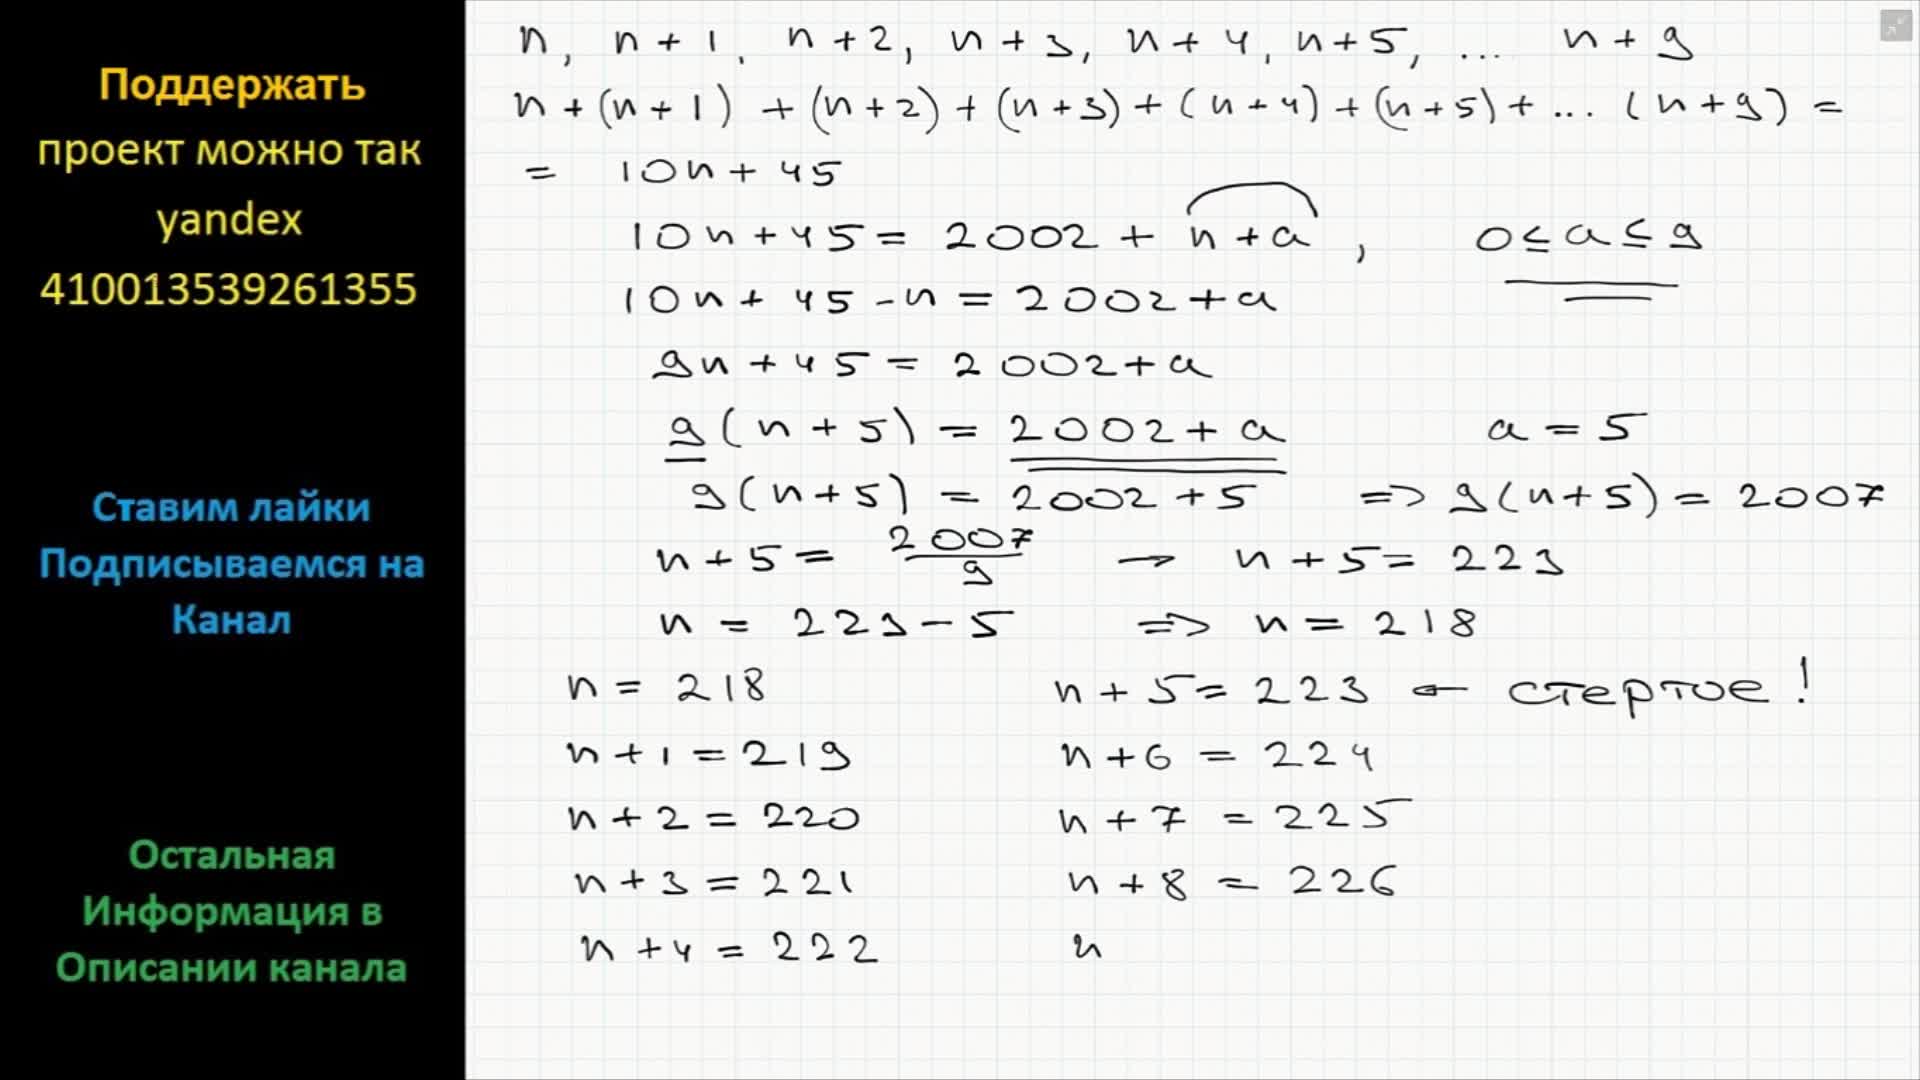 Поддержать
проект можно так
yandex
410013539261355
Ставим лайки
Подписываемся на
Канал
Остальная
Информация в
Описании канала
n, n+1, n+2, n+3, n+4, n+5, ... n+9
n+(n+1)+(n+2)+(n+3)+(n+4)+(n+5)+...(n+9)=
= 10n+45
10n+45=2002+n+a, 0≤a≤9
10n+45-n=2002+a
9n+45=2002+a
9(n+5)=2002+a a=5
9(n+5)=2002+5 => 9(n+5)=2007
n+5=2007/9 → n+5=223
n=223-5 => n=218
n=218 n+5=223 ← стертое!
n+1=219 n+6=224
n+2=220 n+7=225
n+3=221 n+8=226
n+4=222 n